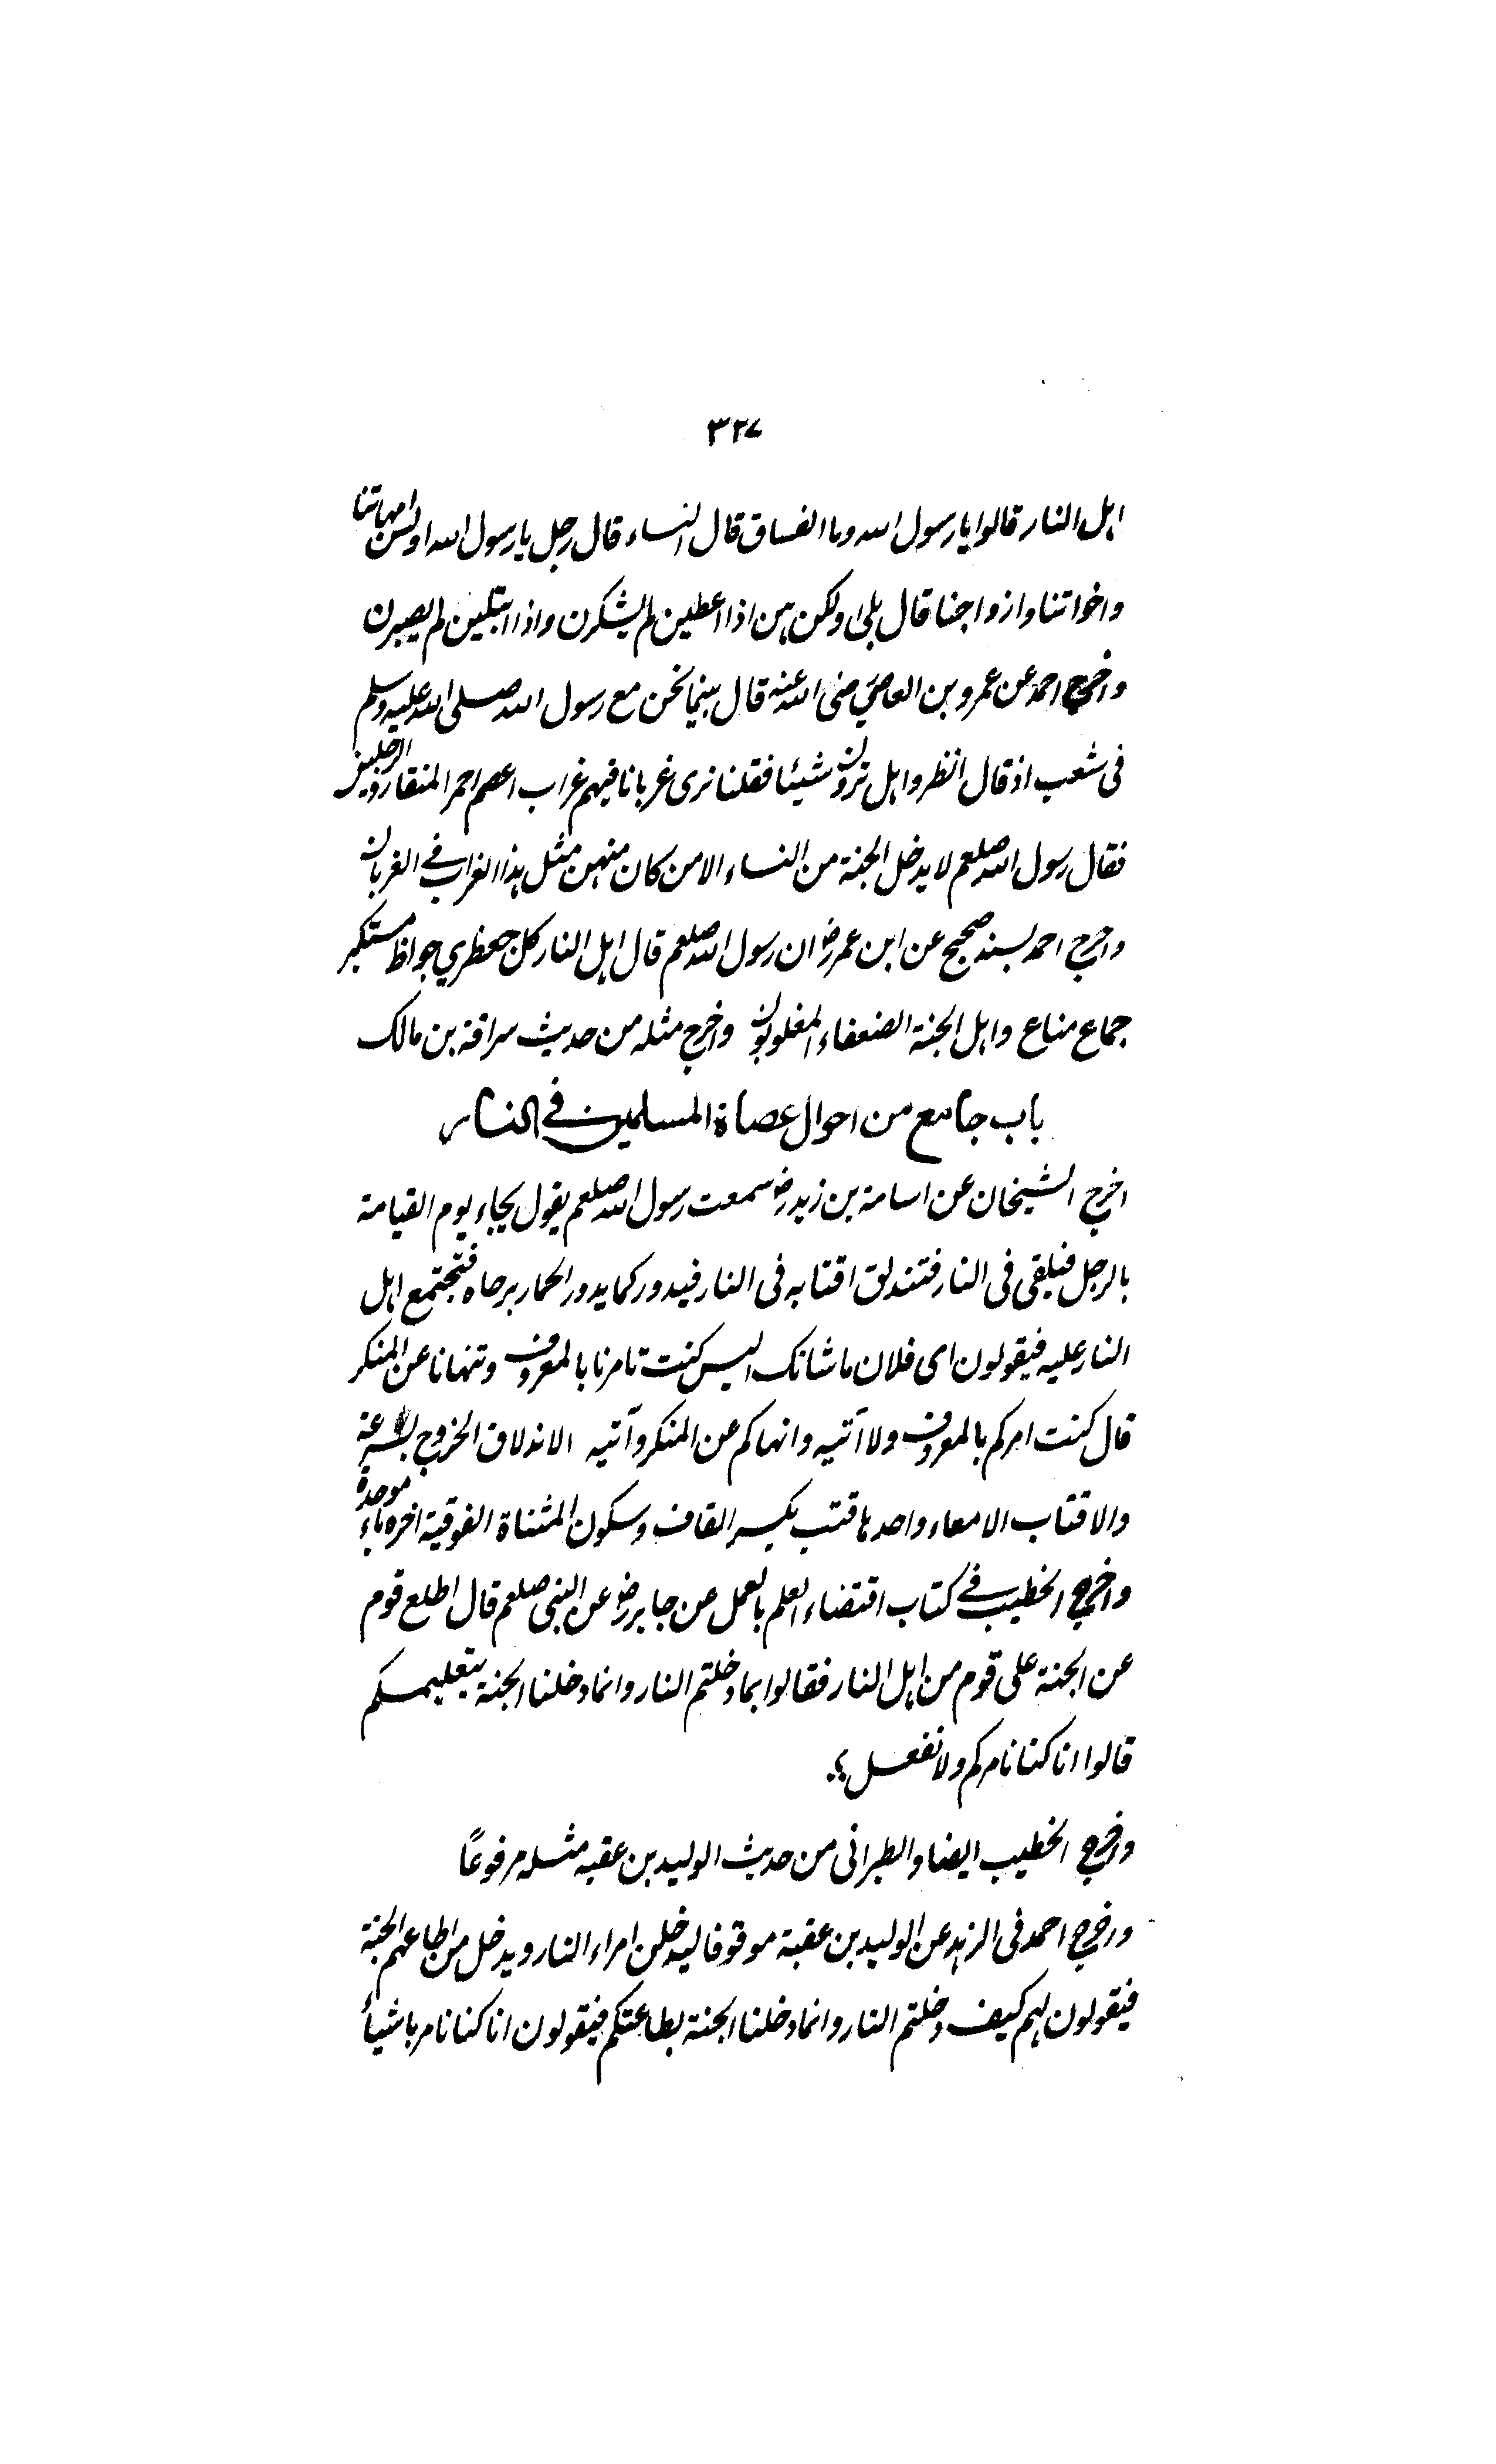 ٣٢٧
اهل النار قالوا يا رسول الله وما الفساق قال النساء قال رجل يا رسول الله اولسن امهاتنا
واخواتنا وازواجنا قال بلى ولكن هن اذا اعطين لم يشكرن واذا ابتلين لم يصبرن
واخرج احمد عن عمرو بن العاص رضى الله عنه قال بينما نحن مع رسول الله صلى الله عليه وسلم
فى شعب اذ قال انظروا هل ترون شيئا فقلنا نرى غربانا فيهم غراب اعصم احمر المنقار والرجلين
فقال رسول الله صلعم لا يدخل الجنة من النساء الا من كان منهن مثل هذا الغراب في الغربان
واخرج احمد بسند صحيح عن ابن عمر رض ان رسول الله صلعم قال اهل النار كل جعظري جواظ مستكبر
جماع مناع واهل الجنة الضعفاء المغلوبون واخرج مثله من حديث سراقة بن مالك
باب جامع من احوال عصاة المسلمين في النار
اخرج الشيخان عن اسامة بن زيد رض سمعت رسول الله صلعم يقول يجاء يوم القيامة
بالرجل فيلقى فى النار فتندلق اقتابه فى النار فيدور كما يدور الحمار برحاه فتجتمع اهل
النار عليه فيقولون اى فلان ما شانك اليس كنت تامرنا بالمعروف وتنهانا عن المنكر
قال كنت امركم بالمعروف ولا آتيه وانهاكم عن المنكر وآتيه الاندلاق الخروج بسرعة
والاقتاب الامعاء واحدها قتب بكسر القاف وسكون المثناة الفوقية اخره باء موحدة
واخرج الخطيب في كتاب اقتضاء العلم بالعمل عن جابر رض عن النبى صلعم قال اطلع قوم
عن الجنة على قوم من اهل النار فقالوا بما دخلتم النار وانما دخلنا الجنة بتعليمكم
قالوا انا كنا نامركم ولا نفعل
واخرج الخطيب ايضا والطبرانى من حديث الوليد بن عقبه مثله مرفوعًا
واخرج احمد فى الزهد عن الوليد بن عقبة موقوفا ليدخلن امراء النار ويدخل من اطاعهم الجنة
فيقولون لهم كيف دخلتم النار وانما دخلنا الجنة بطاعتكم فيقولون انا كنا نامر باشياء